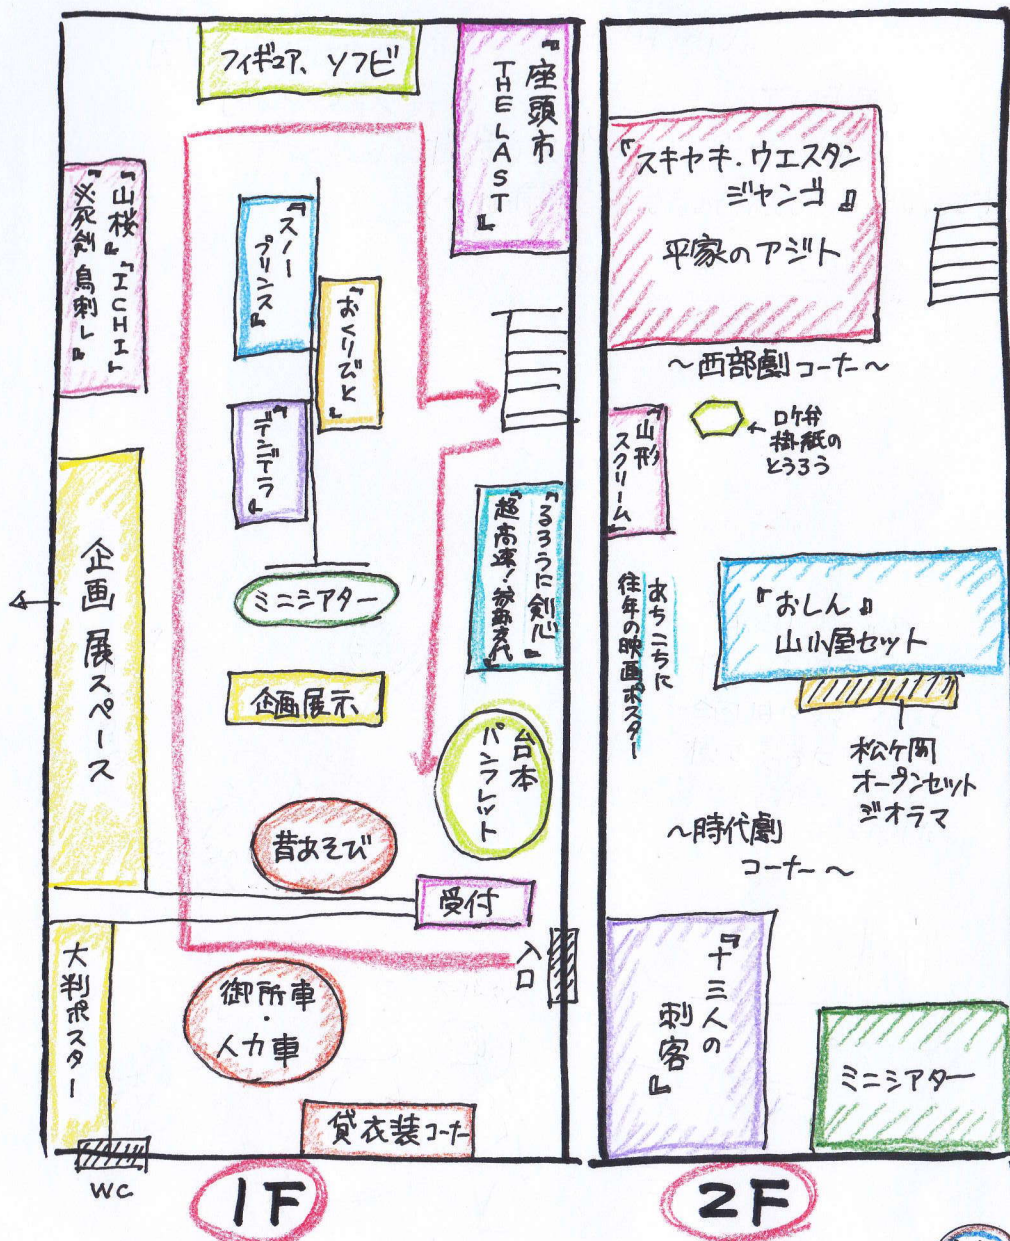 フィギュア、ソフビ
『座頭市
THE LAST』
『山桜』『ICHI』
『必死剣鳥刺し』
『スノー
プリンス』
『おくりびと』
『デンデラ』
ミニシアター
『るろうに剣心』
『超高速!参勤交代』
企画展スペース
企画展示
台本
パンフレット
昔あそび
受付
入口
大判ポスター
御所車
・
人力車
貸衣装コーナー
WC
1F
『スキヤキ・ウエスタン
ジャンゴ』
平家のアジト
〜西部劇コーナー〜
『山形
スクリーム』
ロケ弁
掛紙の
とうろう
あちこちに
往年の映画ポスター
『おしん』
山小屋セット
松ケ岡
オープンセット
ジオラマ
〜時代劇
コーナー〜
『十三人の
刺客』
ミニシアター
2F